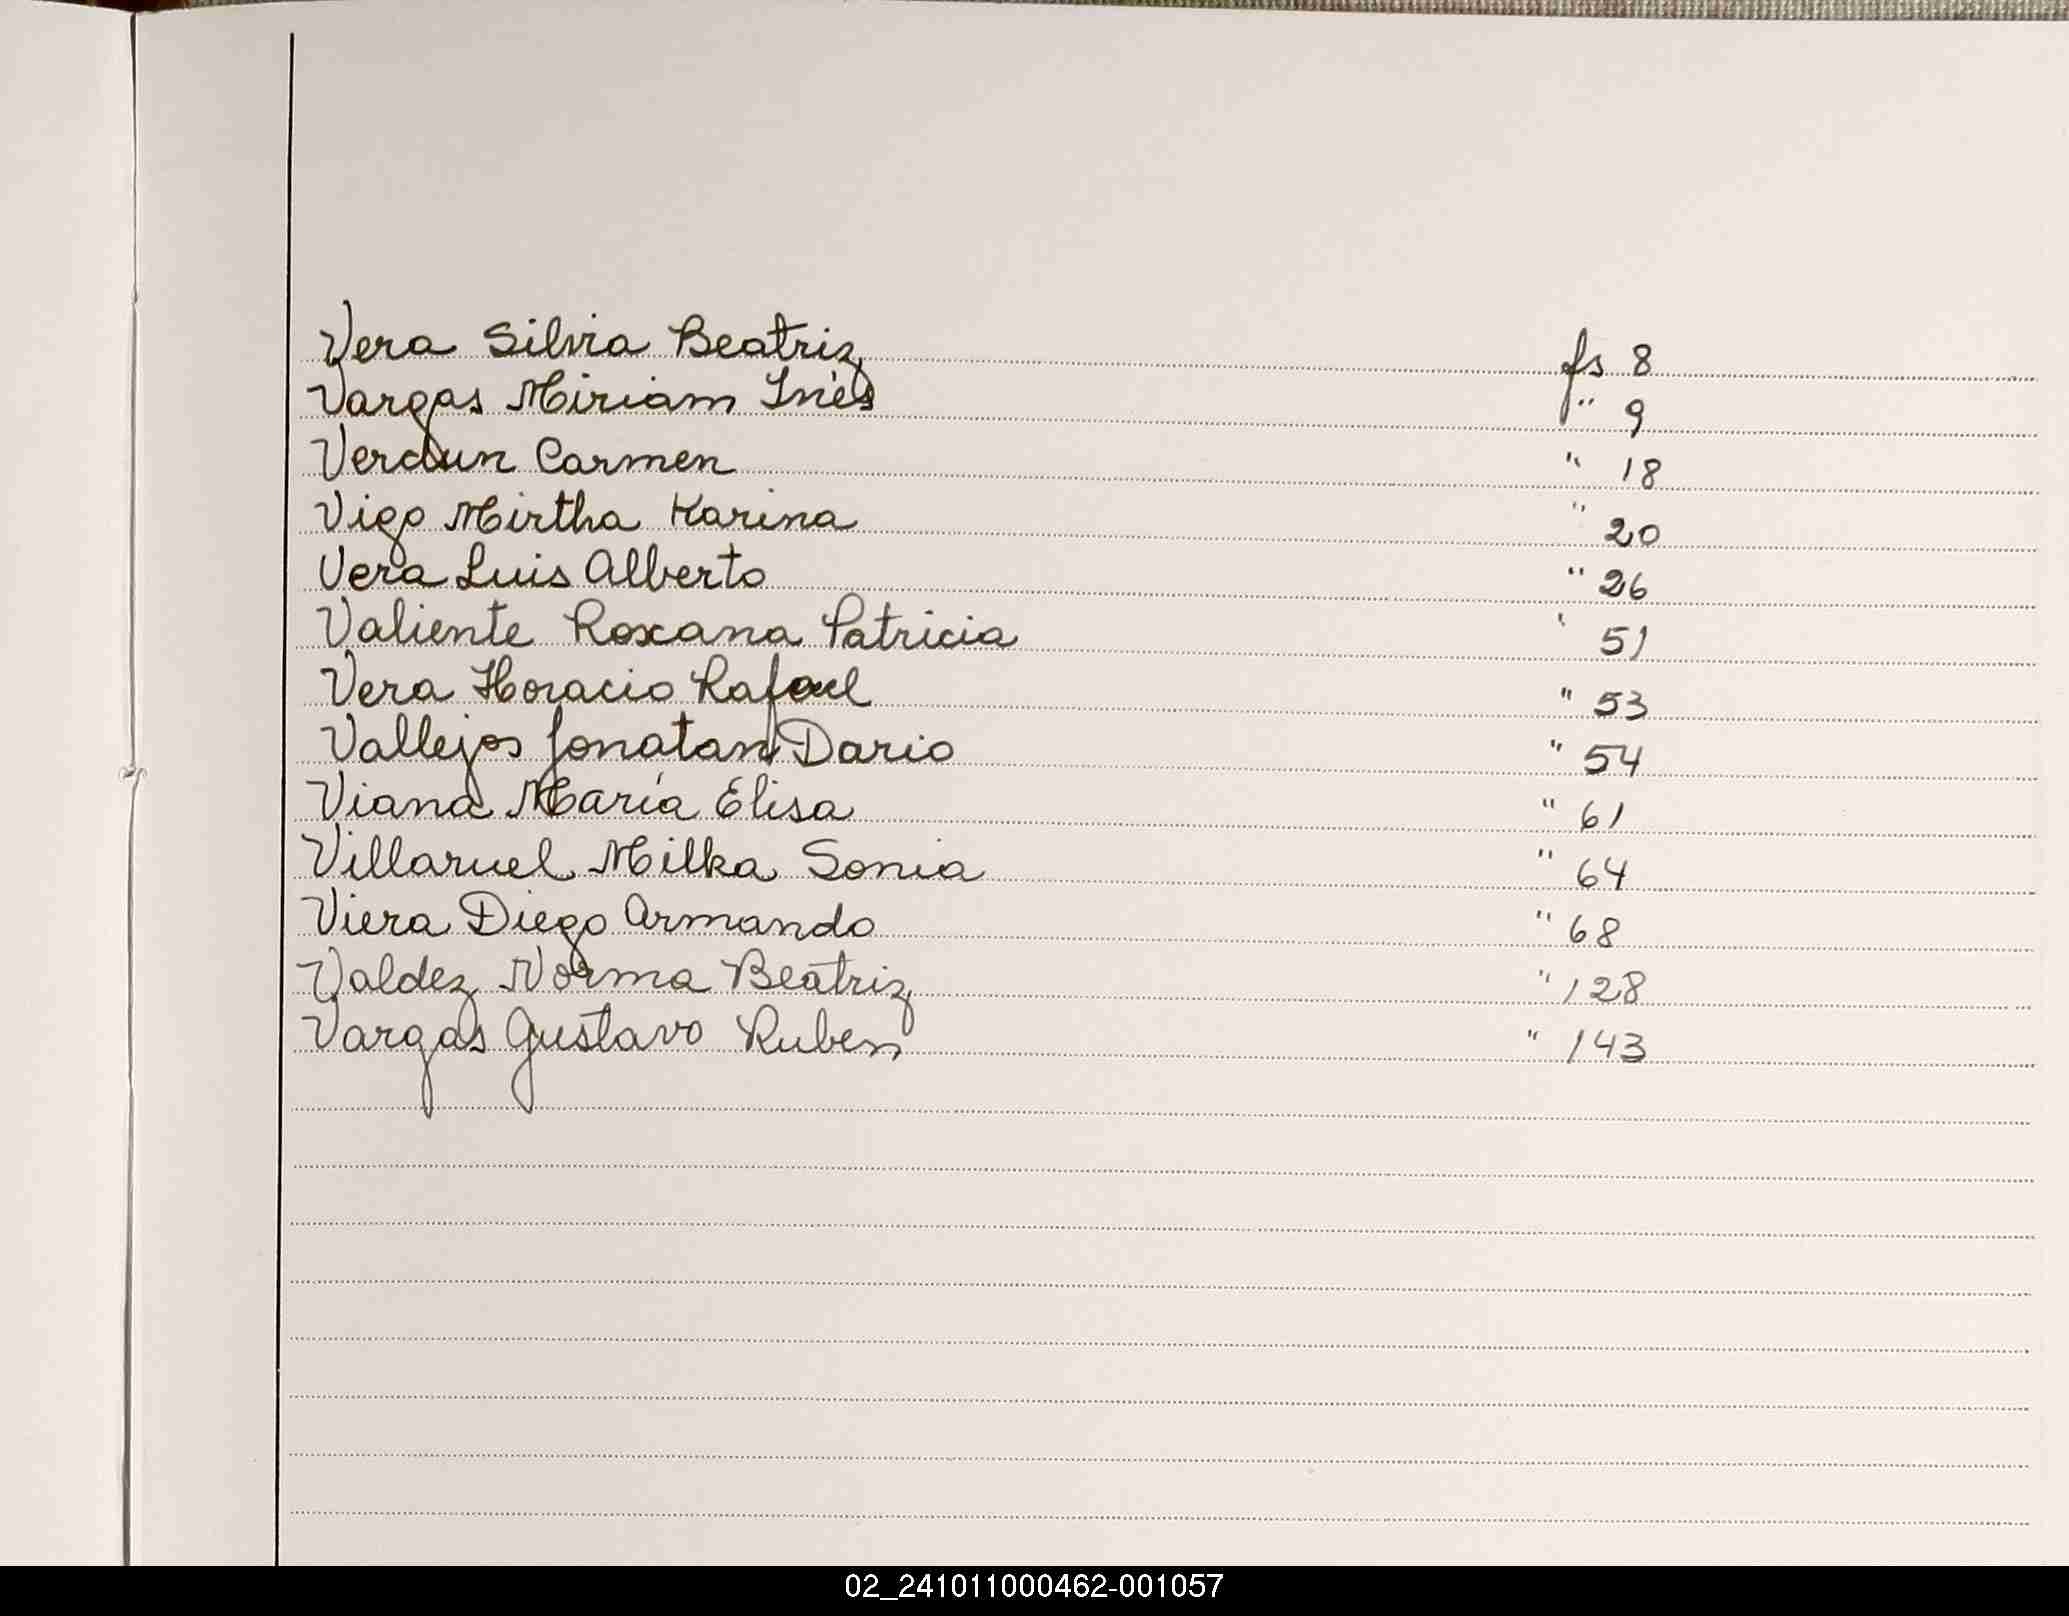 Vera Silvia Beatriz fs 8
Vargas Miriam Inés " 9
Verdun Carmen " 18
Vigo Mirtha Karina " 20
Vera Luis Alberto " 26
Valiente Roxana Patricia ' 51
Vera Horacio Rafael " 53
Vallejos Jonatan Dario " 54
Viana María Elisa " 61
Villaruel Milka Sonia " 64
Viera Diego Armando " 68
Valdez Norma Beatriz " 128
Vargas Gustavo Ruben " 143
02_241011000462-001057